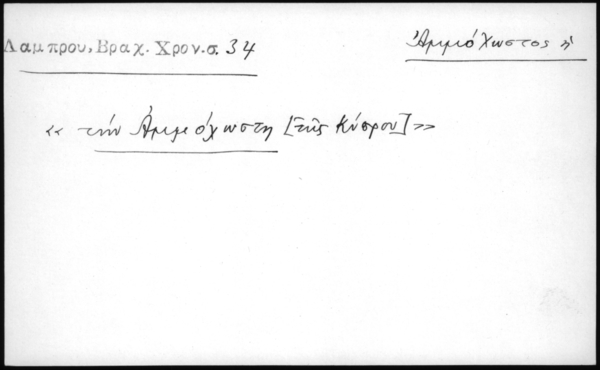 Λαμπρου, Βραχ. Χρον.σ. 34
Ἀμμόχωστος ἡ
«τὴν Ἀμμόχωστη [τῆς Κύπρου]»